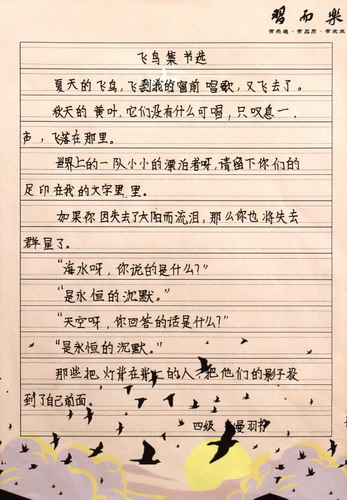 習而樂
飞鸟集 节选
夏天的飞鸟,飞到我的窗前唱歌,又飞去了。
秋天的黄叶,它们没有什么可唱,只叹息一
声,飞落在那里。
世界上的一队小小的漂泊者呀,请留下你们的
足印在我的文字里里。
如果你因失去了太阳而流泪,那么你也将失去
群星了。
“海水呀,你说的是什么?”
“是永恒的沉默。”
“天空呀,你回答的话是什么?”
“是永恒的沉默。”
那些把灯背在背上的人,把他们的影子投
到了自己前面。
四级